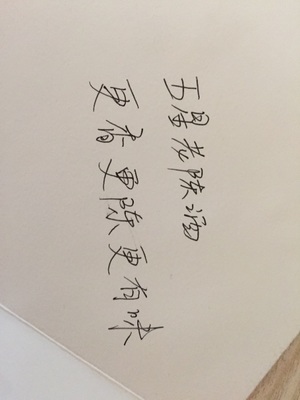 五星老陈酒
更香更陈更有味